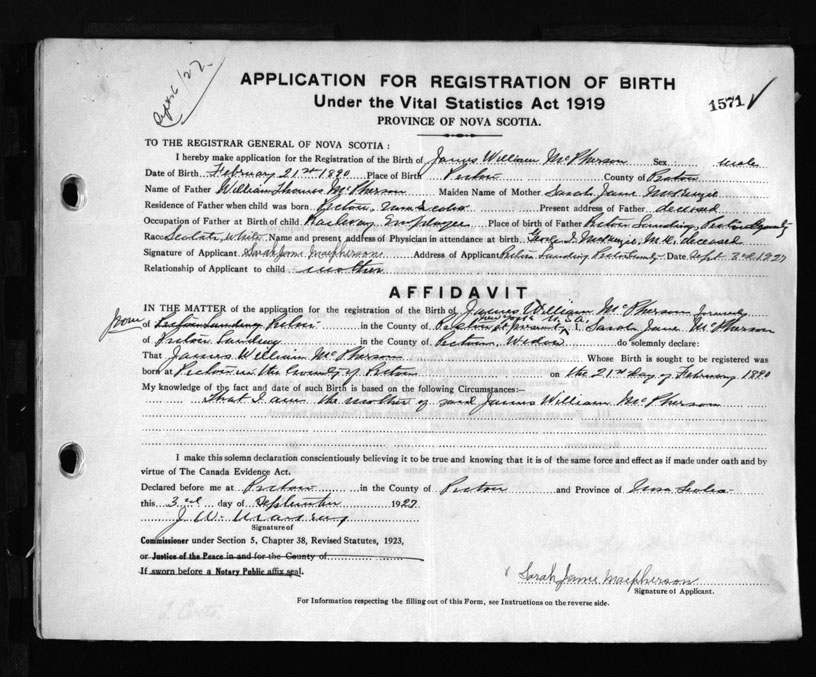 Sept 6/27
APPLICATION FOR REGISTRATION OF BIRTH
Under the Vital Statistics Act 1919
1571
PROVINCE OF NOVA SCOTIA.
TO THE REGISTRAR GENERAL OF NOVA SCOTIA :
I hereby make application for the Registration of the Birth of James William McPherson Sex male
Date of Birth February 21st 1890 Place of Birth Pictou County of Pictou
Name of Father William Thomas McPherson Maiden Name of Mother Sarah Jane McKenzie
Residence of Father when child was born Pictou, Nova Scotia Present address of Father deceased
Occupation of Father at Birth of child Railway Employee Place of birth of Father Pictou Landing, Pictou County
Race Scotch, White Name and present address of Physician in attendance at birth George I. McKenzie, M.D., deceased
Signature of Applicant Sarah Jane Macpherson Address of Applicant Pictou Landing Pictou County Date Sept 3rd 1927
Relationship of Applicant to child mother
AFFIDAVIT
IN THE MATTER of the application for the registration of the Birth of James William McPherson formerly
of Pictou in the County of at present I, Sarah Jane McPherson
of Pictou Landing in the County of Pictou, Widow do solemnly declare:
That James William McPherson Whose Birth is sought to be registered was
born at Pictou in the County of Pictou on the 21st day of February 1890
My knowledge of the fact and date of such Birth is based on the following Circumstances:–
That I am the mother of said James William McPherson
I make this solemn declaration conscientiously believing it to be true and knowing that it is of the same force and effect as if made under oath and by
virtue of The Canada Evidence Act.
Declared before me at Pictou in the County of Pictou and Province of Nova Scotia
this 3rd day of September 1927
J. W.
Signature of
Commissioner under Section 5, Chapter 38, Revised Statutes, 1923,
or Justice of the Peace in and for the County of
If sworn before a Notary Public affix seal.
Sarah Jane Macpherson
Signature of Applicant.
For Information respecting the filling out of this Form, see Instructions on the reverse side.